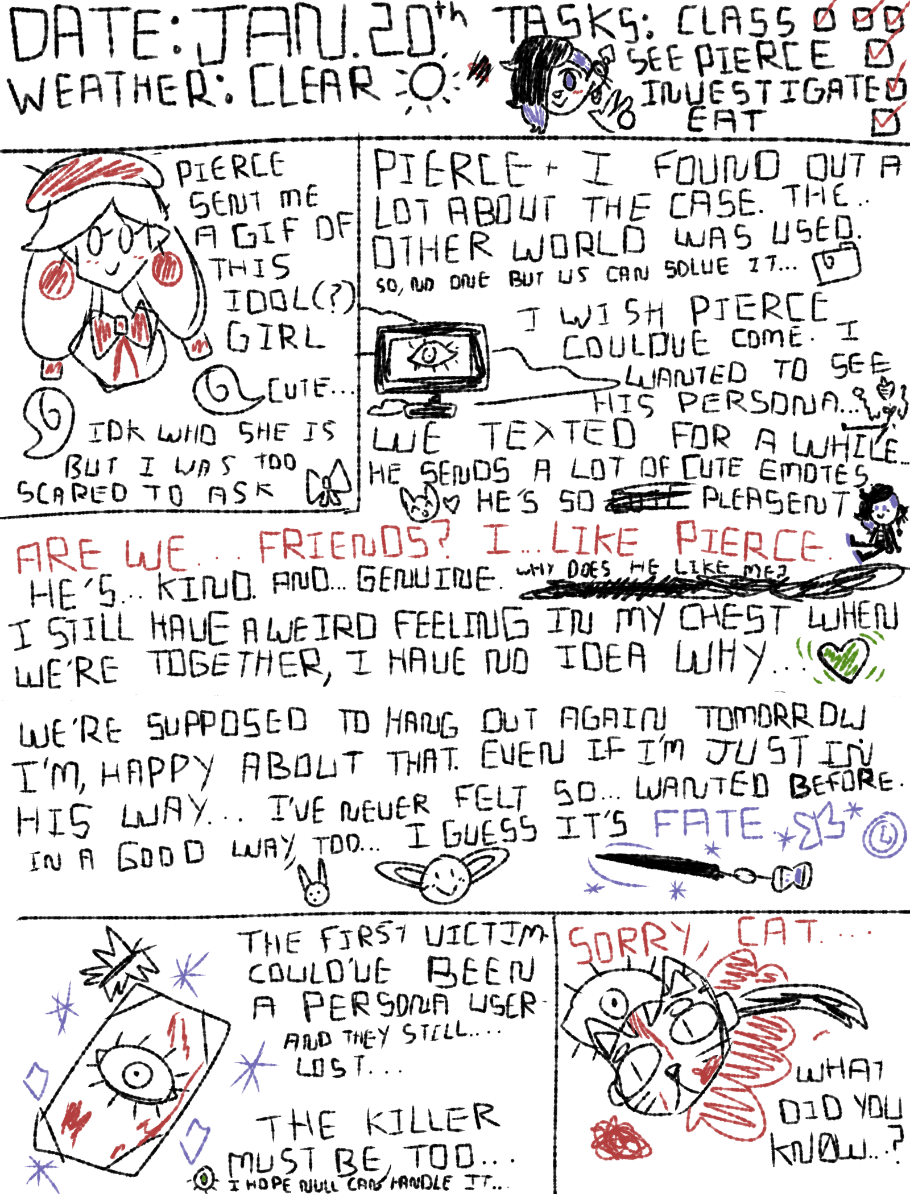 DATE: JAN. 20th
WEATHER: CLEAR
TASKS: CLASS
SEE PIERCE
INVESTIGATE
EAT
NO
PIERCE
SENT ME
A GIF OF
THIS
IDOL(?)
GIRL
CUTE...
IDK WHO SHE IS
BUT I WAS TOO
SCARED TO ASK
PIERCE + I FOUND OUT A
LOT ABOUT THE CASE. THE..
OTHER WORLD WAS USED.
SO, NO ONE BUT US CAN SOLVE IT...
I WISH PIERCE
COULDVE COME. I
WANTED TO SEE
HIS PERSONA...
WE TEXTED FOR A WHILE...
HE SENDS A LOT OF CUTE EMOTES
HE'S SO PLEASENT
ARE WE... FRIENDS? I...LIKE PIERCE.
HE'S... KIND. AND... GENUINE. WHY DOES HE LIKE ME?
I STILL HAVE A WEIRD FEELING IN MY CHEST WHEN
WE'RE TOGETHER, I HAVE NO IDEA WHY...
WE'RE SUPPOSED TO HANG OUT AGAIN TOMORROW
I'M, HAPPY ABOUT THAT. EVEN IF I'M JUST IN
HIS WAY... I'VE NEVER FELT SO... WANTED BEFORE.
IN A GOOD WAY, TOO... I GUESS IT'S FATE
THE FIRST VICTIM
COULD'VE BEEN
A PERSONA USER
AND THEY STILL....
LOST...
THE KILLER
MUST BE, TOO...
I HOPE NULL CAN HANDLE IT...
SORRY, CAT....
WHAT
DID YOU
KNOW...?